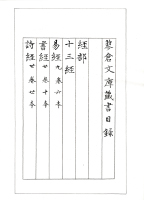 棃倉文庫藏書目録
經部
十三經
易經九卷六本
書經廿卷十本
詩經廿卷七本